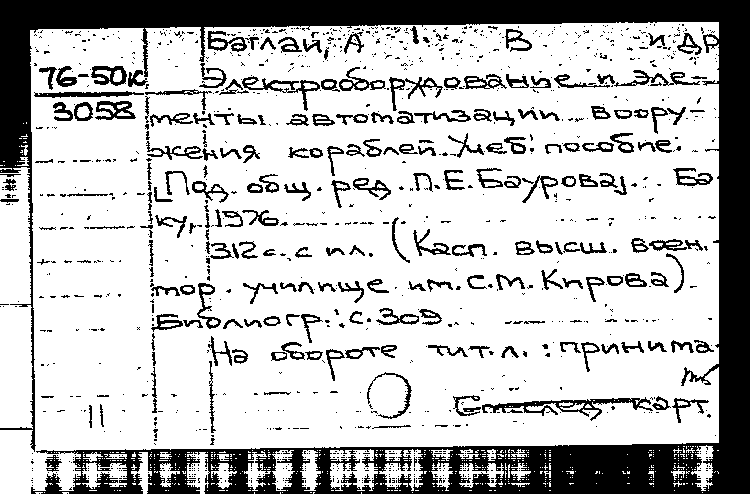 Баглай, А. В. и др
76-50к Электрооборудование и эле-
3058 менты автоматизации воору-
жения кораблей. Учеб. пособие.
[Под. общ. ред. П.Е.Баурова]. Ба-
ку, 1976.
312 с. с ил. (Касп. высш. воен.-
мор. училище им. С.М. Кирова)
Библиогр.: с. 309.
На обороте тит. л. : принима-
См. след. карт.
11